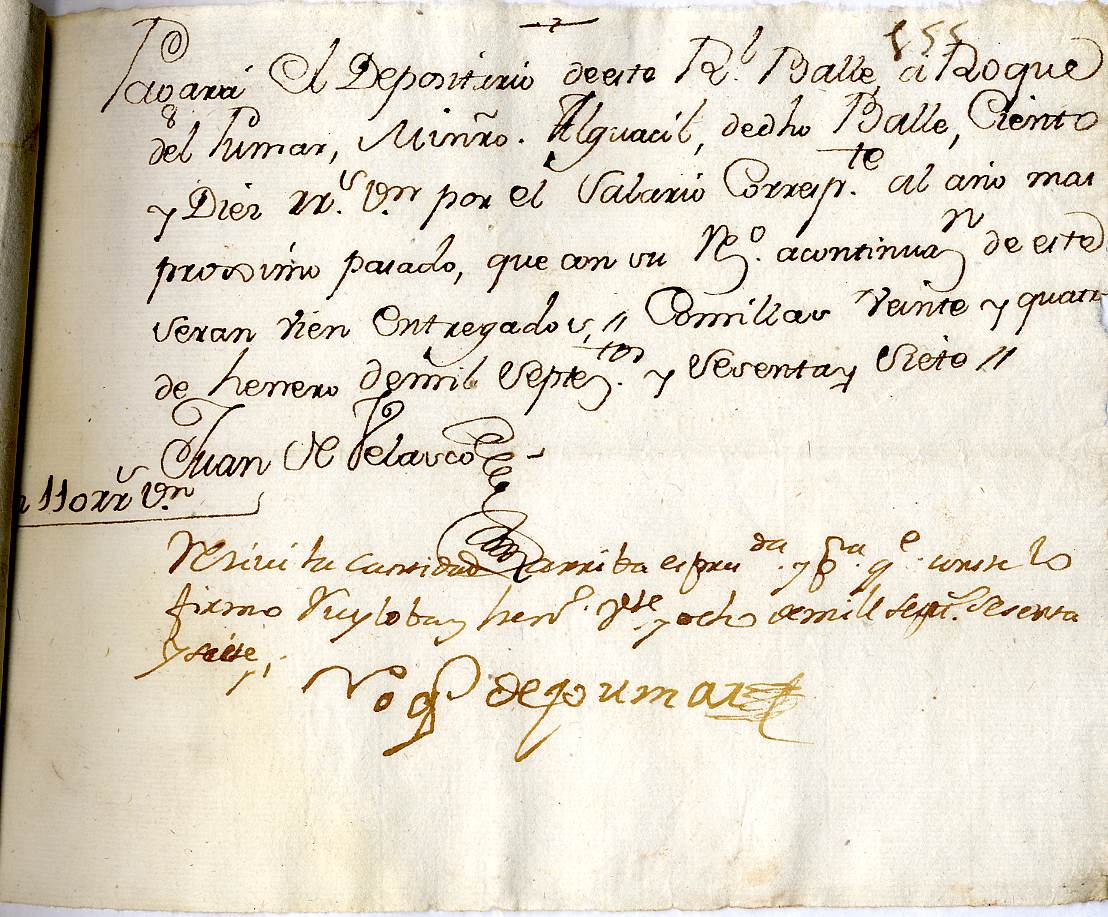 155
Pagará el Depositario de este Rl. Balle, á Roque
del Pumar, Minrõ. Alguacil, dedho Balle, Ciento
y Diez rrs. vn por el Salario Corresp.te al año mas
proximo pasado, que con su R.o acontinuan de este
seran vien entregados, // Comillas Veinte y quatro
de henero demil Septetos. y Sesenta y Siete //
Juan de Velasco
110 rrs vn
Resivi la cantidad arriba espresada. y pa. qe. conste lo
firmo Ruyloba y henro. y ocho demill setesº. sesenta
y siete
Roqe de pumar